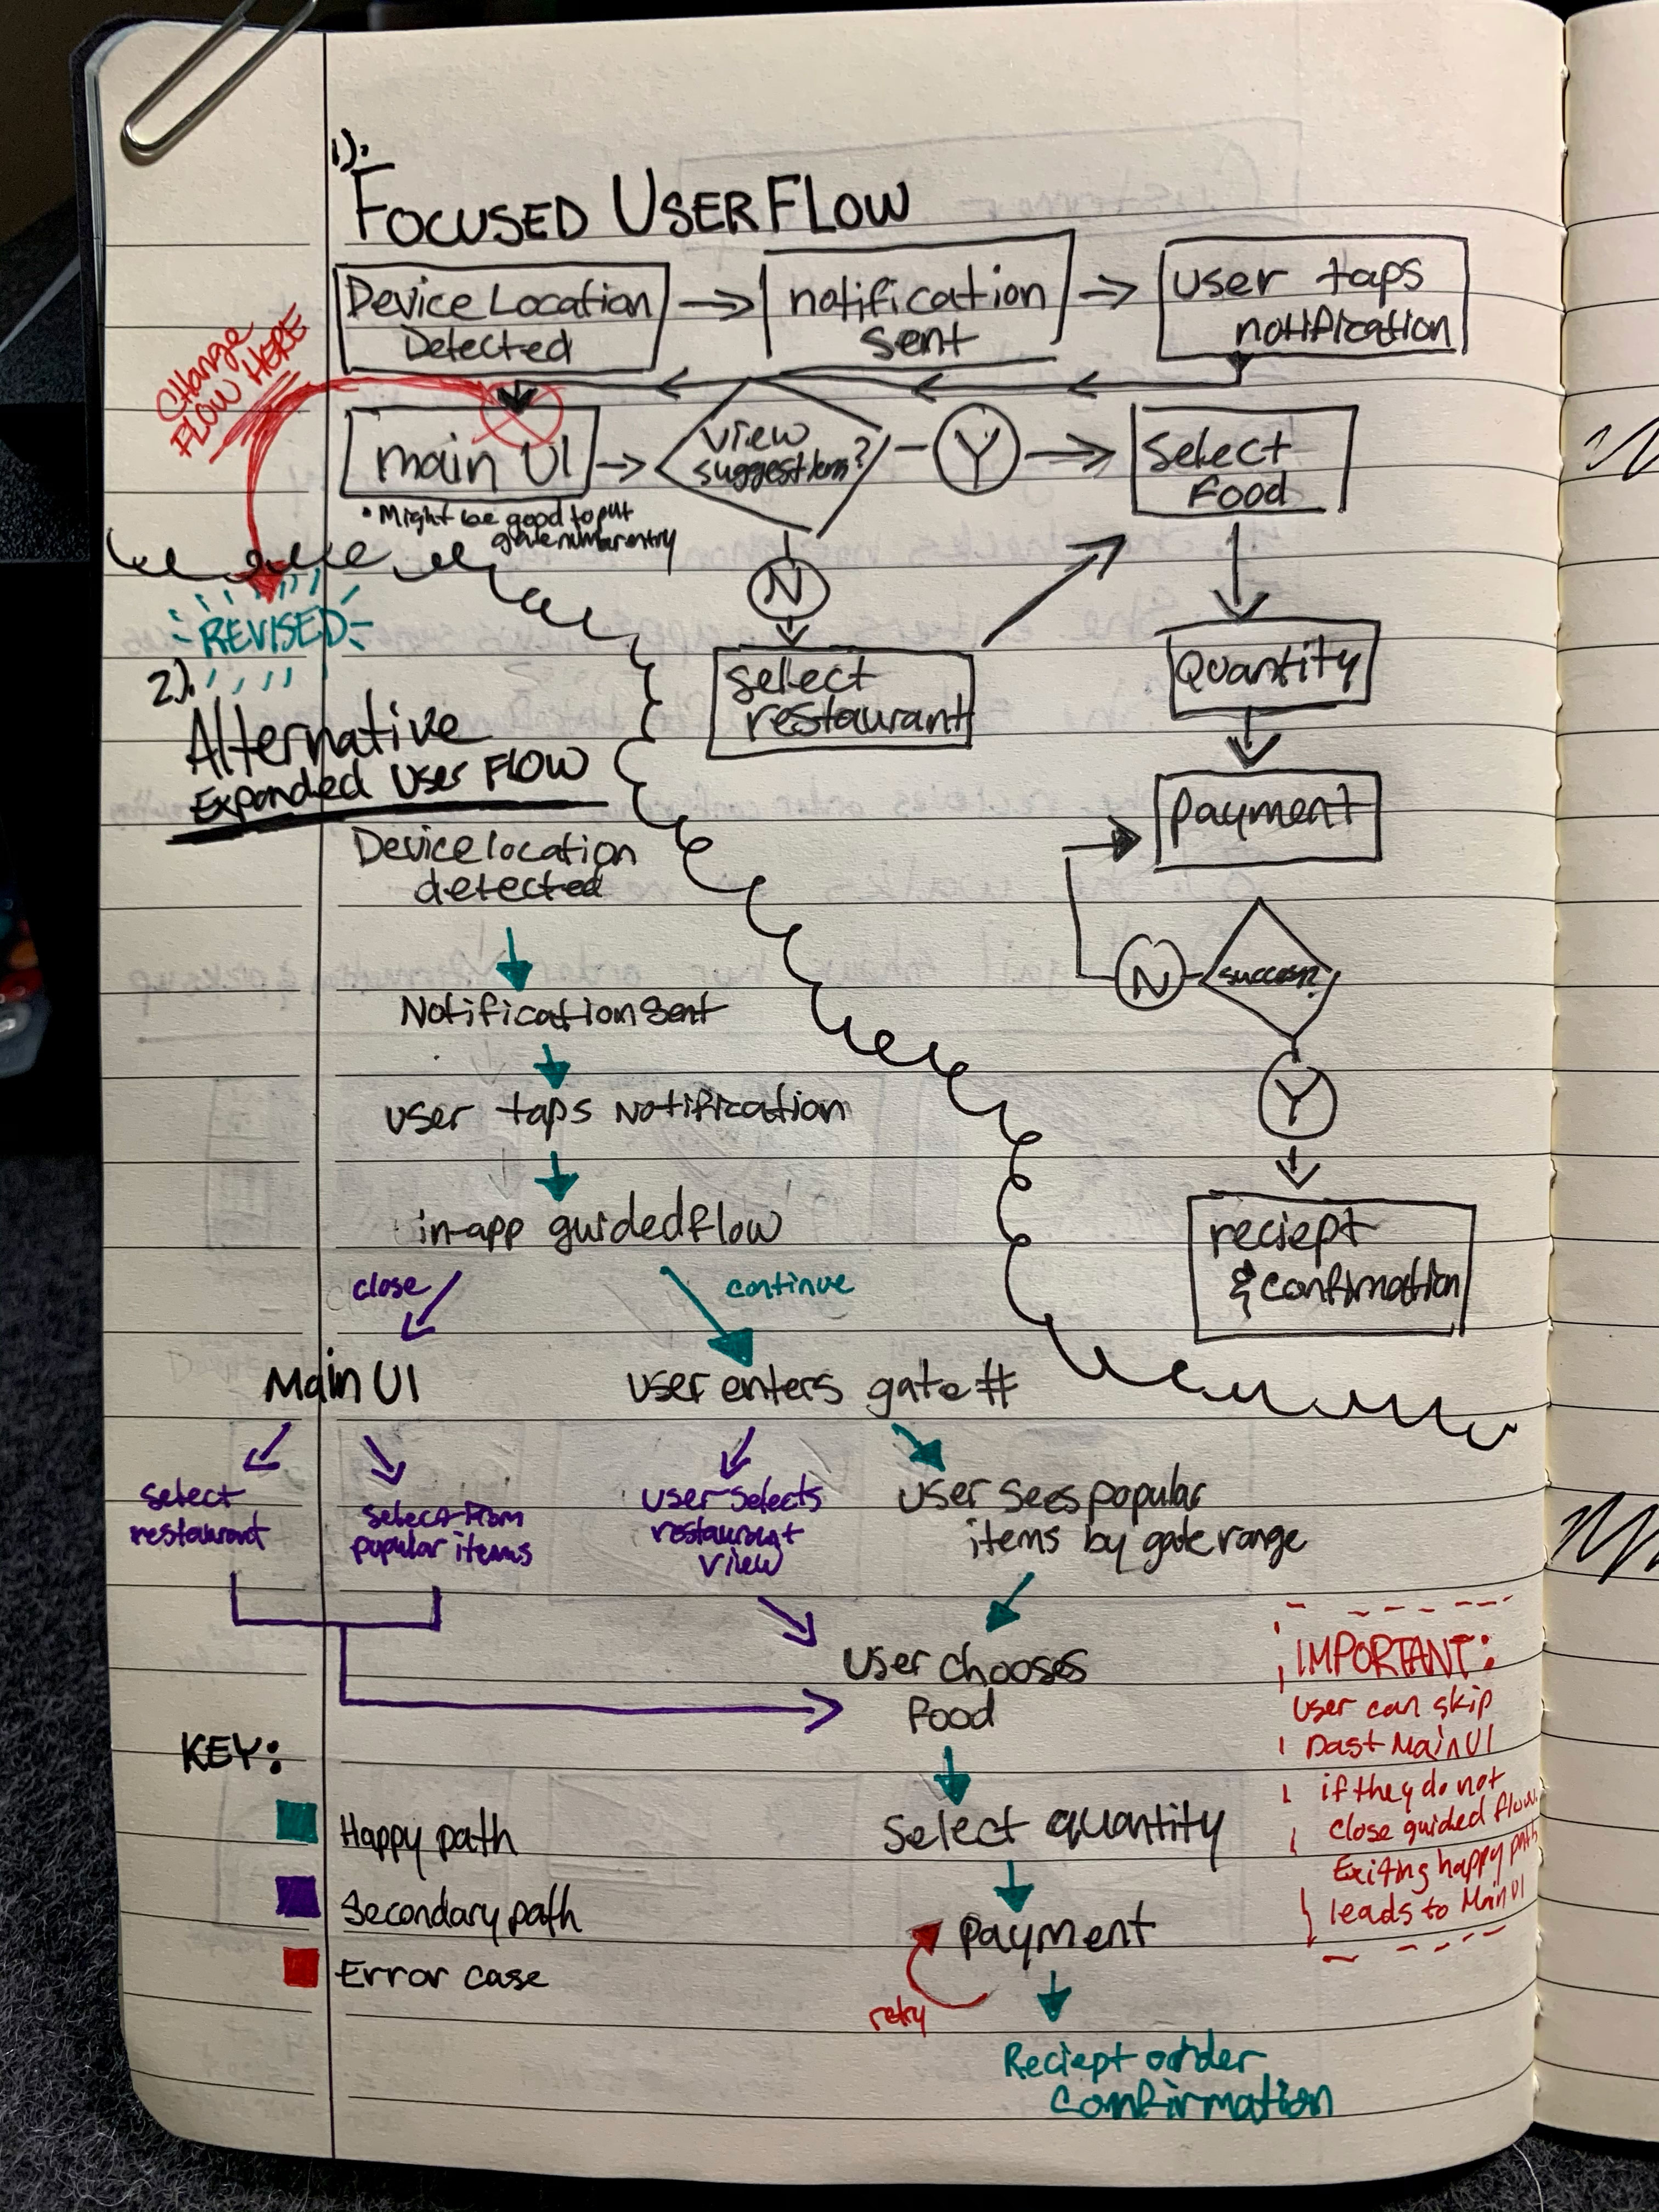 1).
FOCUSED USER FLOW
Device Location
Detected
notification
sent
user taps
notification
CHANGE
FLOW HERE
main UI
• Might be good to put
gate number entry
view
suggestions?
Y
Select
Food
N
select
restaurant
Quantity
payment
success?
N
Y
reciept
& confirmation
REVISED
2).
Alternative
Expanded User FLOW
Device location
detected
Notification Sent
user taps Notification
in-app guided flow
close
continue
Main UI
User enters gate #
select
restaurant
select from
popular items
user selects
restaurant
view
User sees popular
items by gate range
User chooses
food
Select quantity
payment
retry
Reciept order
confirmation
KEY:
Happy path
Secondary path
Error case
IMPORTANT:
User can skip
past Main UI
if they do not
close guided flow.
Exiting happy path
leads to Main UI